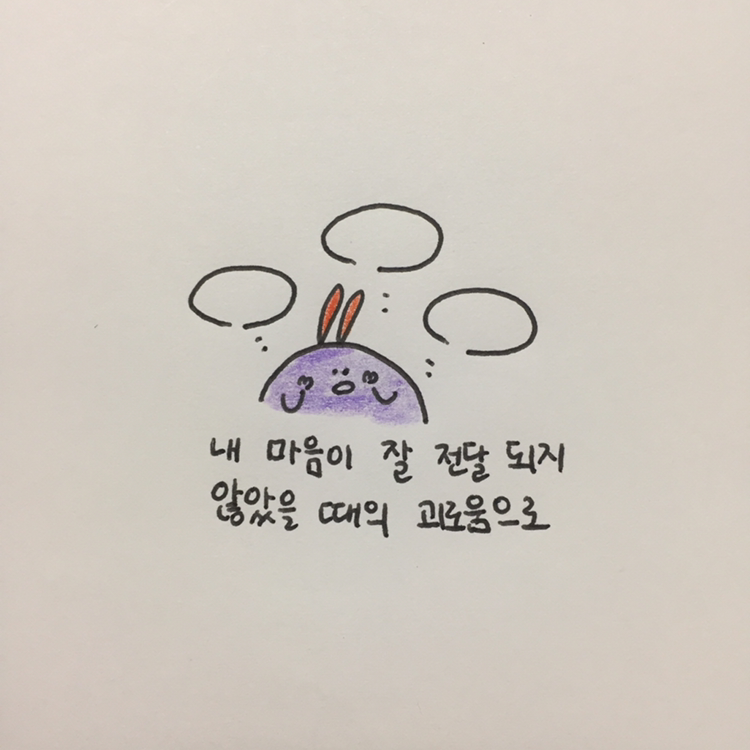 내 마음이 잘 전달 되지
않았을 때의 괴로움으로